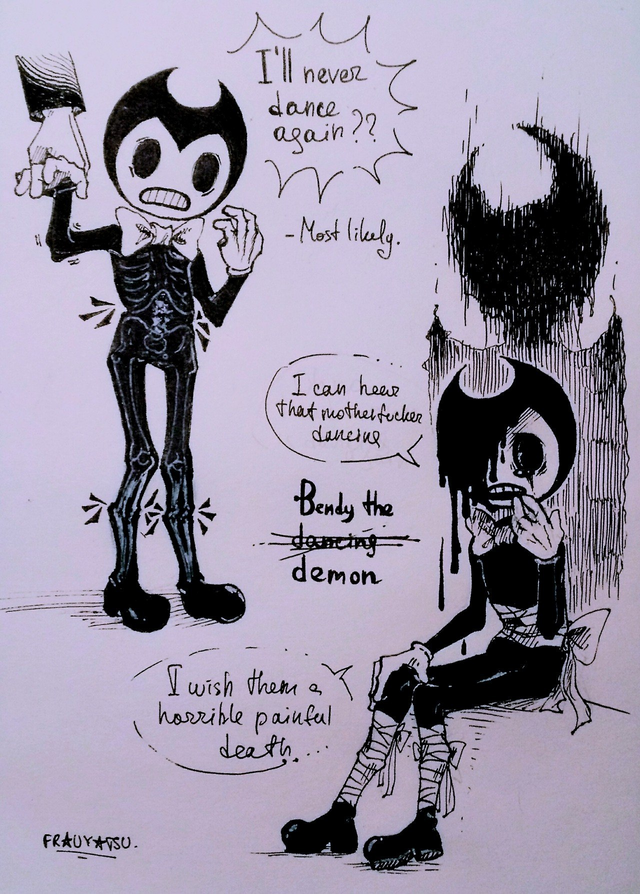 I'll never
dance
again??
- Most likely.
I can hear
that motherfucker
dancing
Bendy the
dancing
demon
I wish them a
horrible painful
death....
FRAUYATSU.